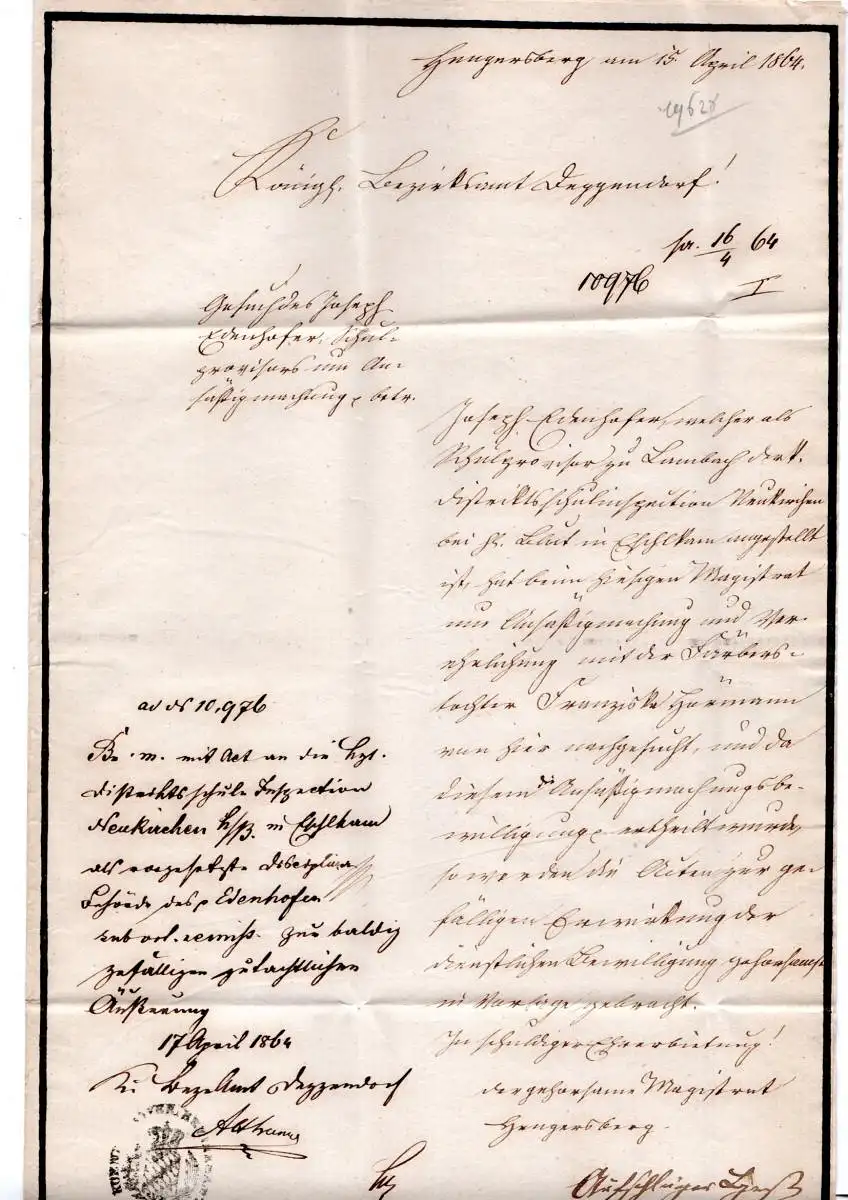 Hengersberg am 15. April 1864.
Königl. Bezirksamt Deggendorf!
pr. 16/4 64
10976
I
Gesuch des Joseph
Edenhofer, Schul-
provisors um An-
säßigmachung betr.
Joseph Edenhofer, welcher als
Schulprovisor zu Lambach der k.
Distriktsschulinspection Neukirchen
bei hl. Blut in Eschlkam angestellt
ist, hat beim hiesigen Magistrat
um Ansäßigmachung und Ver-
ehelichung mit der Färbers-
tochter Franziska Hörmann
von hier nachgesucht, und da
diesem die Ansäßigmachungsbe-
willigung ertheilt wurde,
so werden die Acten zur ge-
fälligen Erwirkung der
dienstlichen Bewilligung gehorsamst
in Vorlage gebracht.
In schuldiger Ehrerbietung!
der gehorsame Magistrat
Hengersberg.
ad 10,976
Br. m. mit Act an die kgl.
Distriktsschul Inspection
Neukirchen h/B. in Eschlkam
als vorgesetzte Disciplinar
Behörde des Edenhofer
sub vot. remiss. zur baldig
gefälligen gutachtlichen
Äußerung
17 April 1864
K. BezAmt Deggendorf